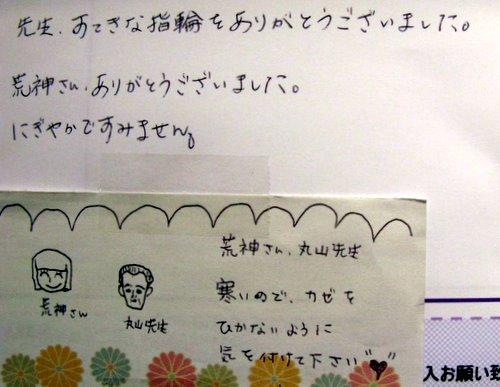 先生、すてきな指輪をありがとうございました。
荒神さん、ありがとうございました。
にぎやかですみません。
荒神さん、丸山先生
寒いので、カゼを
ひかないように
気を付けて下さい
荒神さん
丸山先生
入お願い致